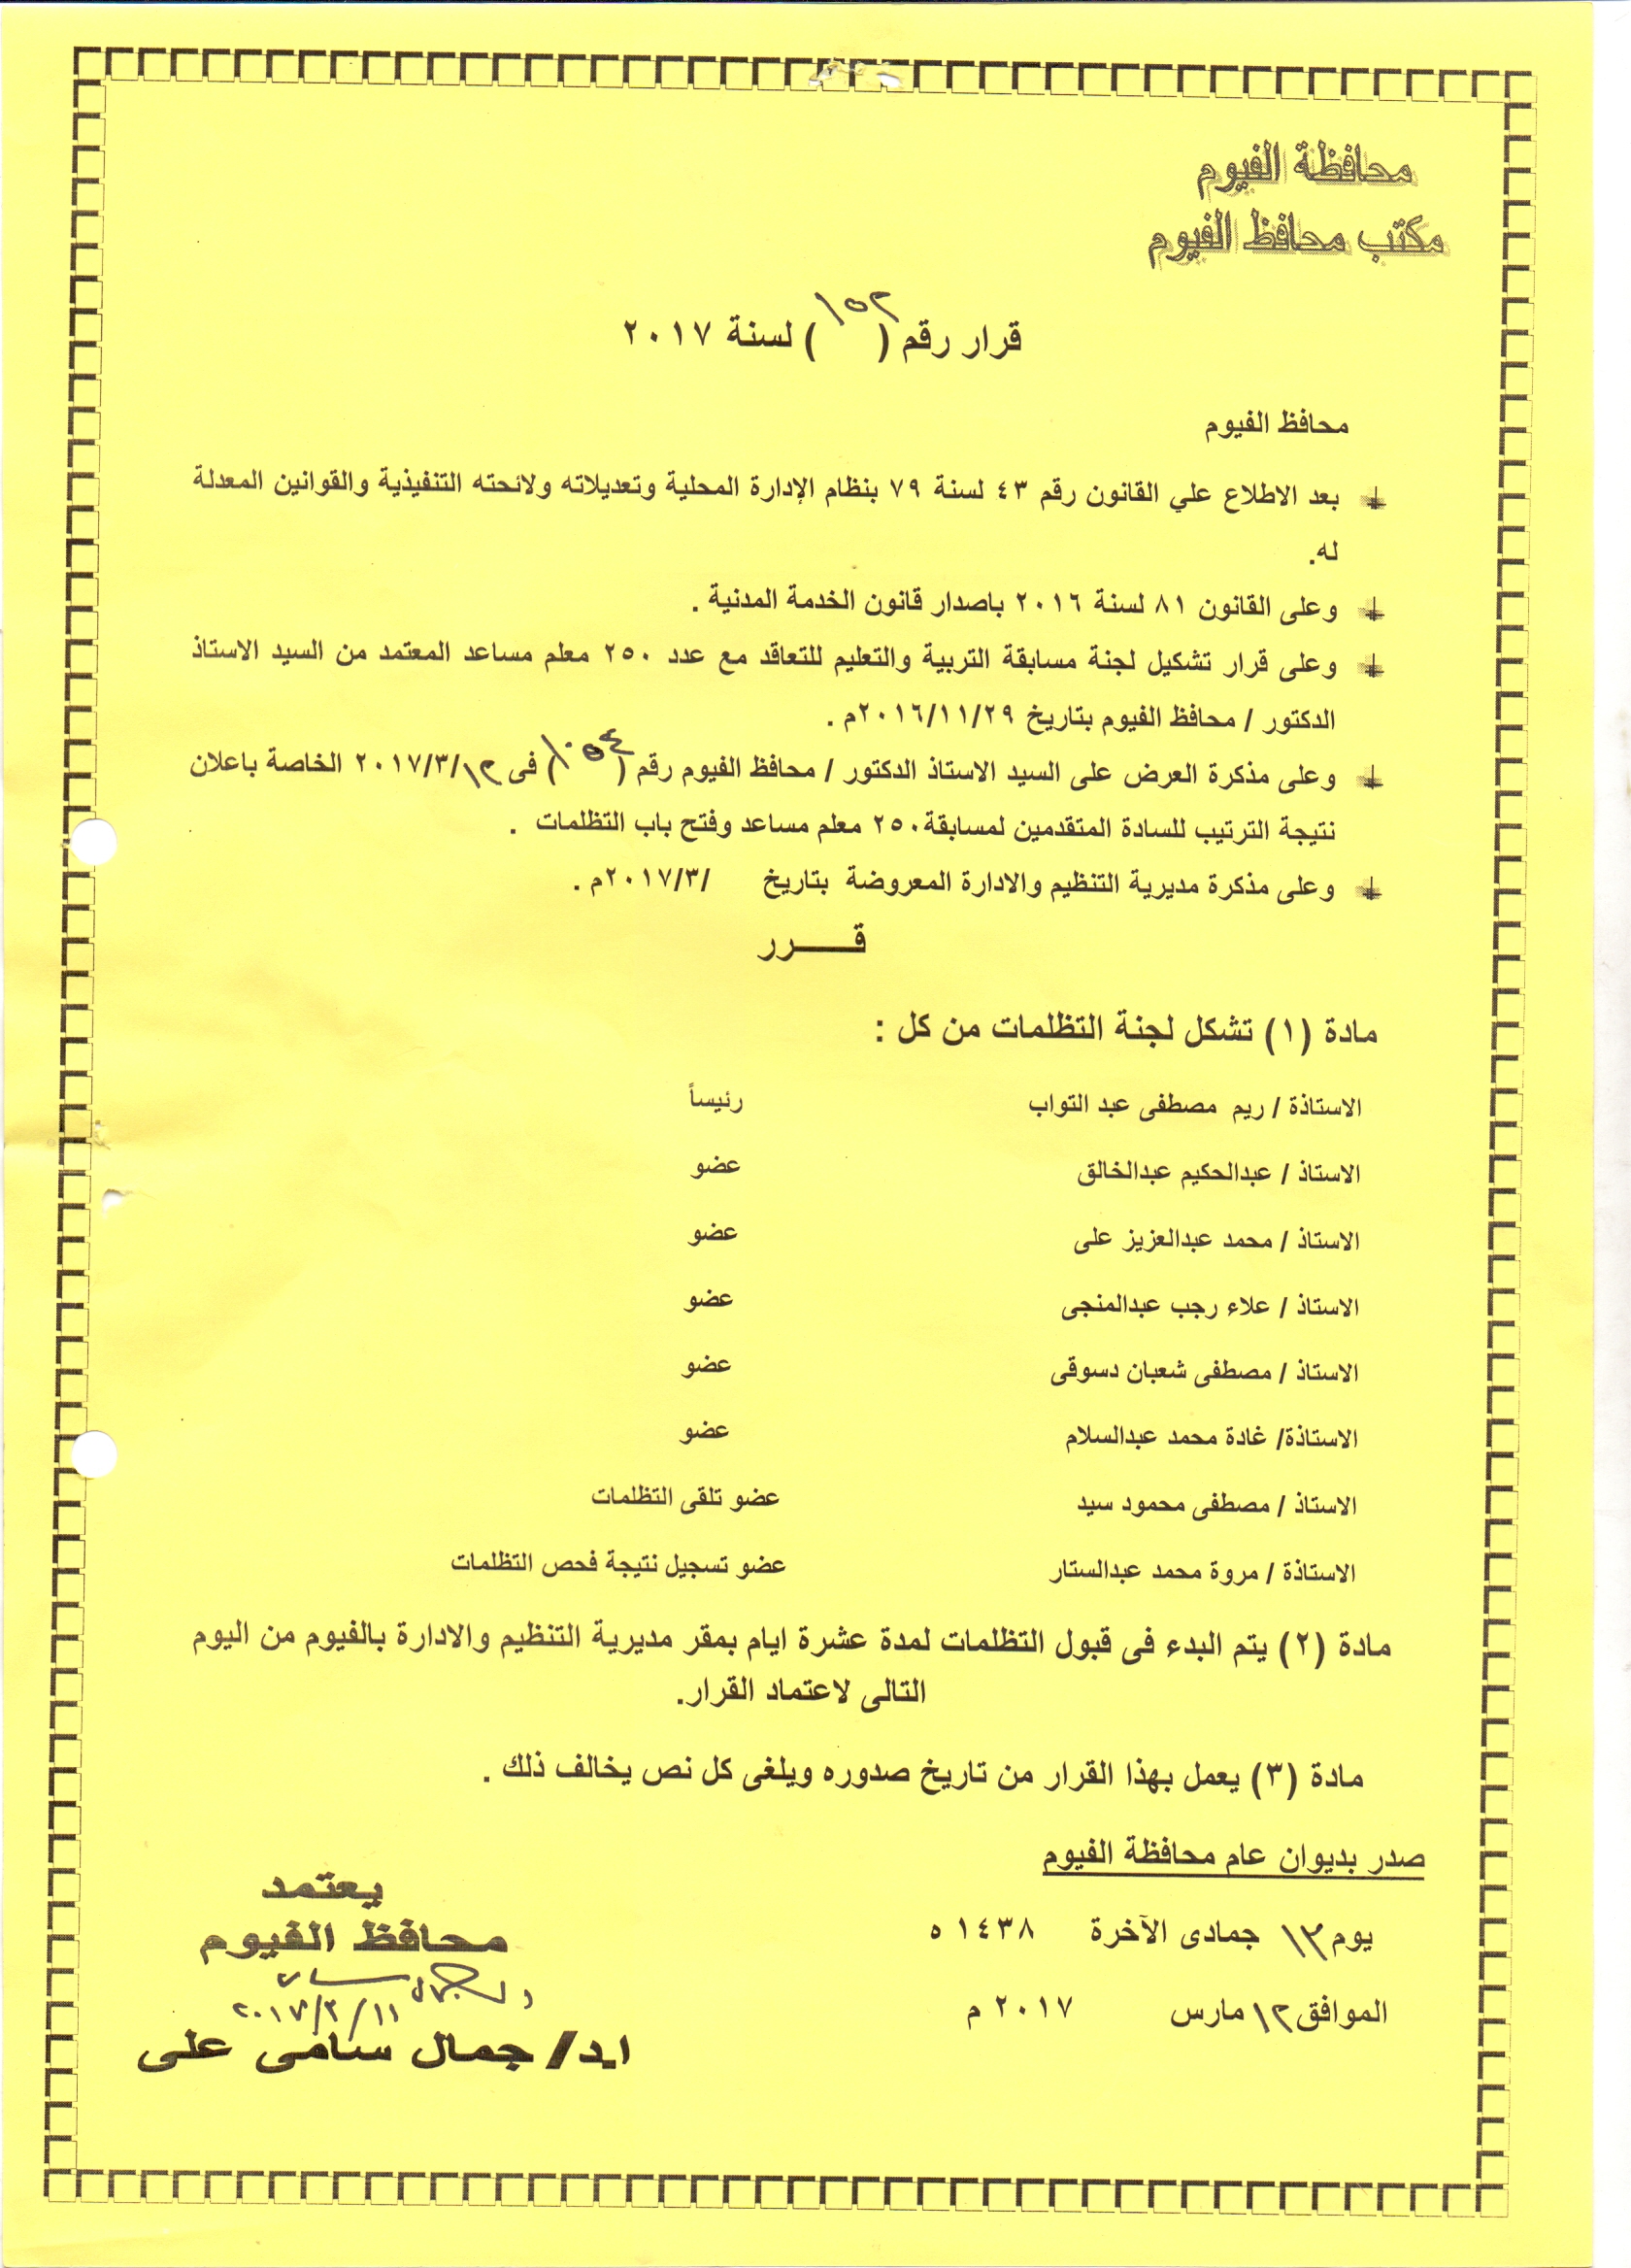 محافظة الفيوم
مكتب محافظ الفيوم
قرار رقم (١٥٢) لسنة ٢٠١٧
محافظ الفيوم
بعد الاطلاع علي القانون رقم ٤٣ لسنة ٧٩ بنظام الإدارة المحلية وتعديلاته ولائحته التنفيذية والقوانين المعدلة
له.
وعلى القانون ٨١ لسنة ٢٠١٦ باصدار قانون الخدمة المدنية .
وعلى قرار تشكيل لجنة مسابقة التربية والتعليم للتعاقد مع عدد ٢٥٠ معلم مساعد المعتمد من السيد الاستاذ
الدكتور / محافظ الفيوم بتاريخ ٢٠١٦/١١/٢٩م .
وعلى مذكرة العرض على السيد الاستاذ الدكتور / محافظ الفيوم رقم (١٠٥٤) فى ٢٠١٧/٣/١٢ الخاصة باعلان
نتيجة الترتيب للسادة المتقدمين لمسابقة٢٥٠ معلم مساعد وفتح باب التظلمات .
وعلى مذكرة مديرية التنظيم والادارة المعروضة بتاريخ /٢٠١٧/٣م .
قـــــرر
مادة (١) تشكل لجنة التظلمات من كل :
الاستاذة / ريم مصطفى عبد التواب رئيساً
الاستاذ / عبدالحكيم عبدالخالق عضو
الاستاذ / محمد عبدالعزيز على عضو
الاستاذ / علاء رجب عبدالمنجى عضو
الاستاذ / مصطفى شعبان دسوقى عضو
الاستاذة/ غادة محمد عبدالسلام عضو
الاستاذ / مصطفى محمود سيد عضو تلقى التظلمات
الاستاذة / مروة محمد عبدالستار عضو تسجيل نتيجة فحص التظلمات
مادة (٢) يتم البدء فى قبول التظلمات لمدة عشرة ايام بمقر مديرية التنظيم والادارة بالفيوم من اليوم
التالى لاعتماد القرار.
مادة (٣) يعمل بهذا القرار من تاريخ صدوره ويلغى كل نص يخالف ذلك .
صدر بديوان عام محافظة الفيوم
يوم ١٣ جمادى الآخرة ١٤٣٨ ه
الموافق ١٢ مارس ٢٠١٧ م
يعتمد
محافظ الفيوم
ا.د/ جمال سامى على